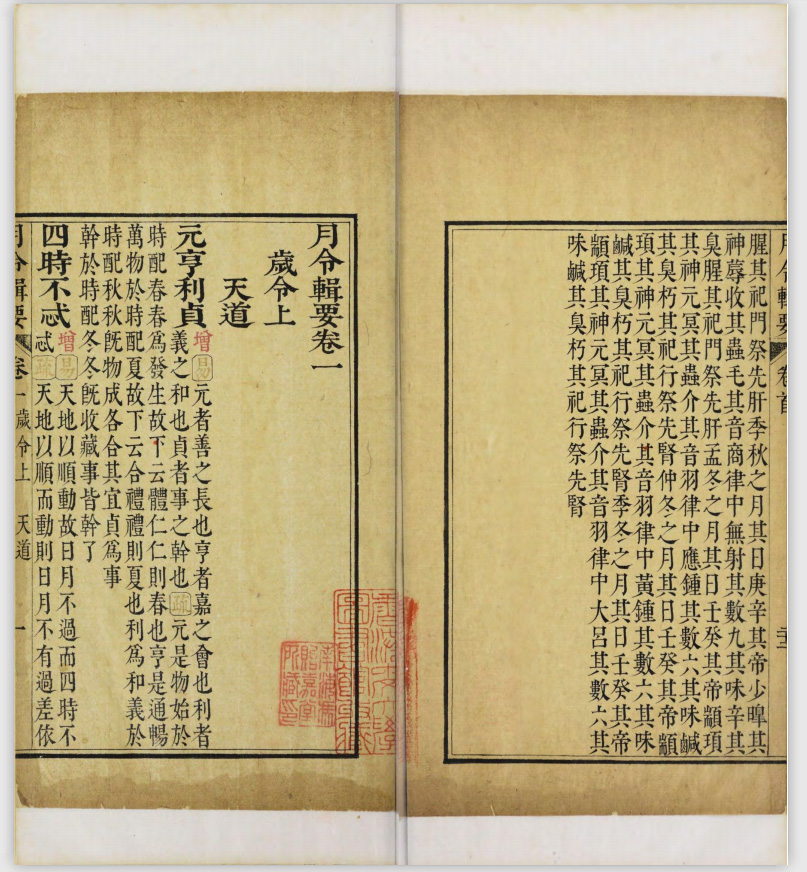 月令輯要 卷首
腥其祀門祭先肝季秋之月其日庚辛其帝少暤其
神蓐收其蟲毛其音商律中無射其數九其味辛其
臭腥其祀門祭先肝孟冬之月其日壬癸其帝顓頊
其神元冥其蟲介其音羽律中應鍾其數六其味鹹
其臭朽其祀行祭先腎仲冬之月其日壬癸其帝顓
頊其神元冥其蟲介其音羽律中黃鍾其數六其味
鹹其臭朽其祀行祭先腎季冬之月其日壬癸其帝
顓頊其神元冥其蟲介其音羽律中大呂其數六其
味鹹其臭朽其祀行祭先腎
月令輯要卷一
歲令上
天道
元亨利貞
增易元者善之長也亨者嘉之會也利者
義之和也貞者事之幹也疏元是物始於
時配春春爲發生故下云體仁仁則春也亨是通暢
萬物於時配夏故下云合禮禮則夏也利爲和義於
時配秋秋旣物成各合其宜貞爲事
幹於時配冬冬旣收藏事皆幹了
四時不忒
增易天地以順動故日月不過而四時不
忒疏天地以順而動則日月不有過差依
月令輯要 卷一歲令上 天道 一